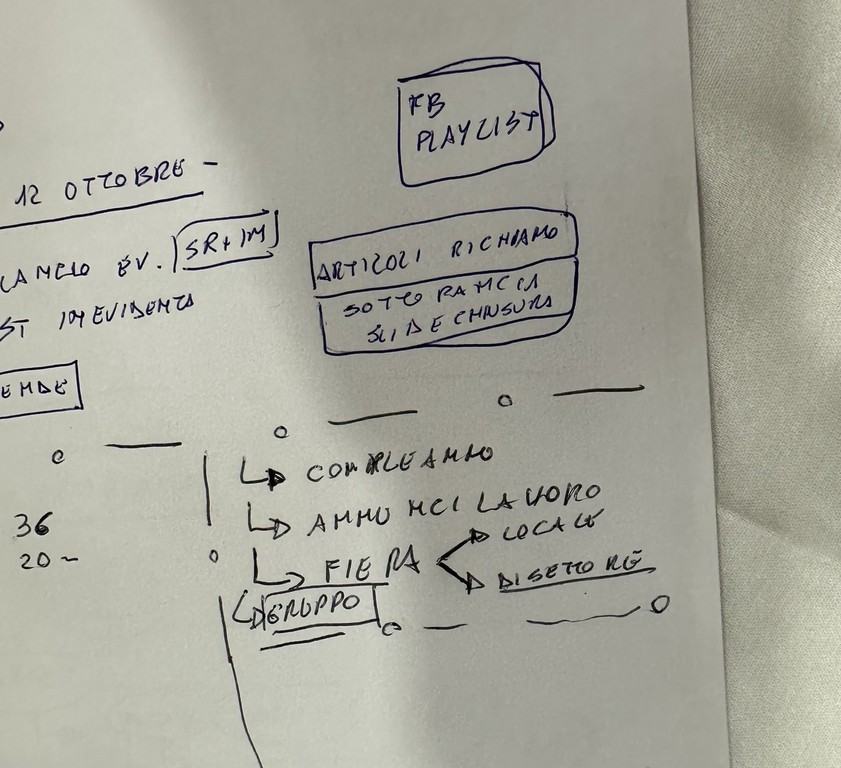 FB
PLAYLIST
12 OTTOBRE -
LANCIO EV. SR + IM
ST IN EVIDENZA
ARTICOLI RICHIAMO
SOTTO PANCIA
SLIDE CHIUSURA
ENDE
COMPLEANNO
36
20 -
ANNUNCI LAVORO
FIERA
LOCALE
DI SETTORE
GRUPPO